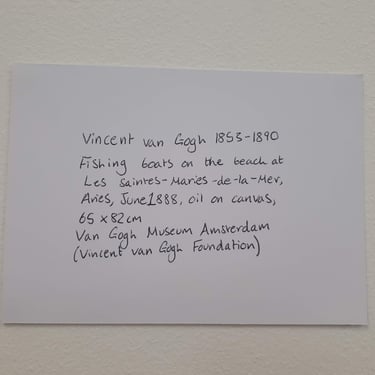 Vincent van Gogh 1853-1890
Fishing boats on the beach at
Les Saintes-Maries-de-la-Mer,
Arles, June 1888, oil on canvas,
65 x 82 cm
Van Gogh Museum Amsterdam
(Vincent van Gogh Foundation)